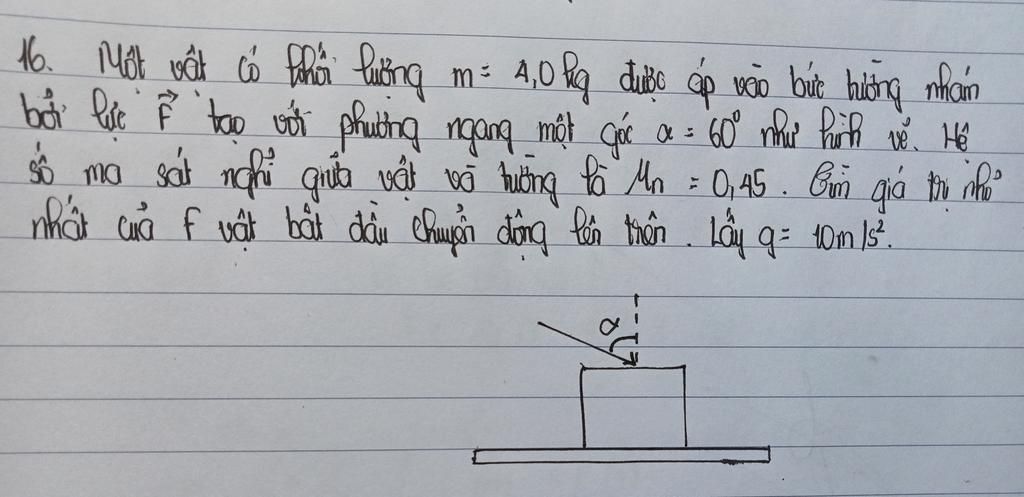 16. Một vật có khối lượng m = 4,0 kg được áp vào bức tường nhám
bởi lực F⃗ tạo với phương ngang một góc α = 60° như hình vẽ. Hệ
số ma sát nghỉ giữa vật và tường là μn = 0,45. Tìm giá trị nhỏ
nhất của f vật bắt đầu chuyển động lên trên. Lấy g = 10m/s².
α